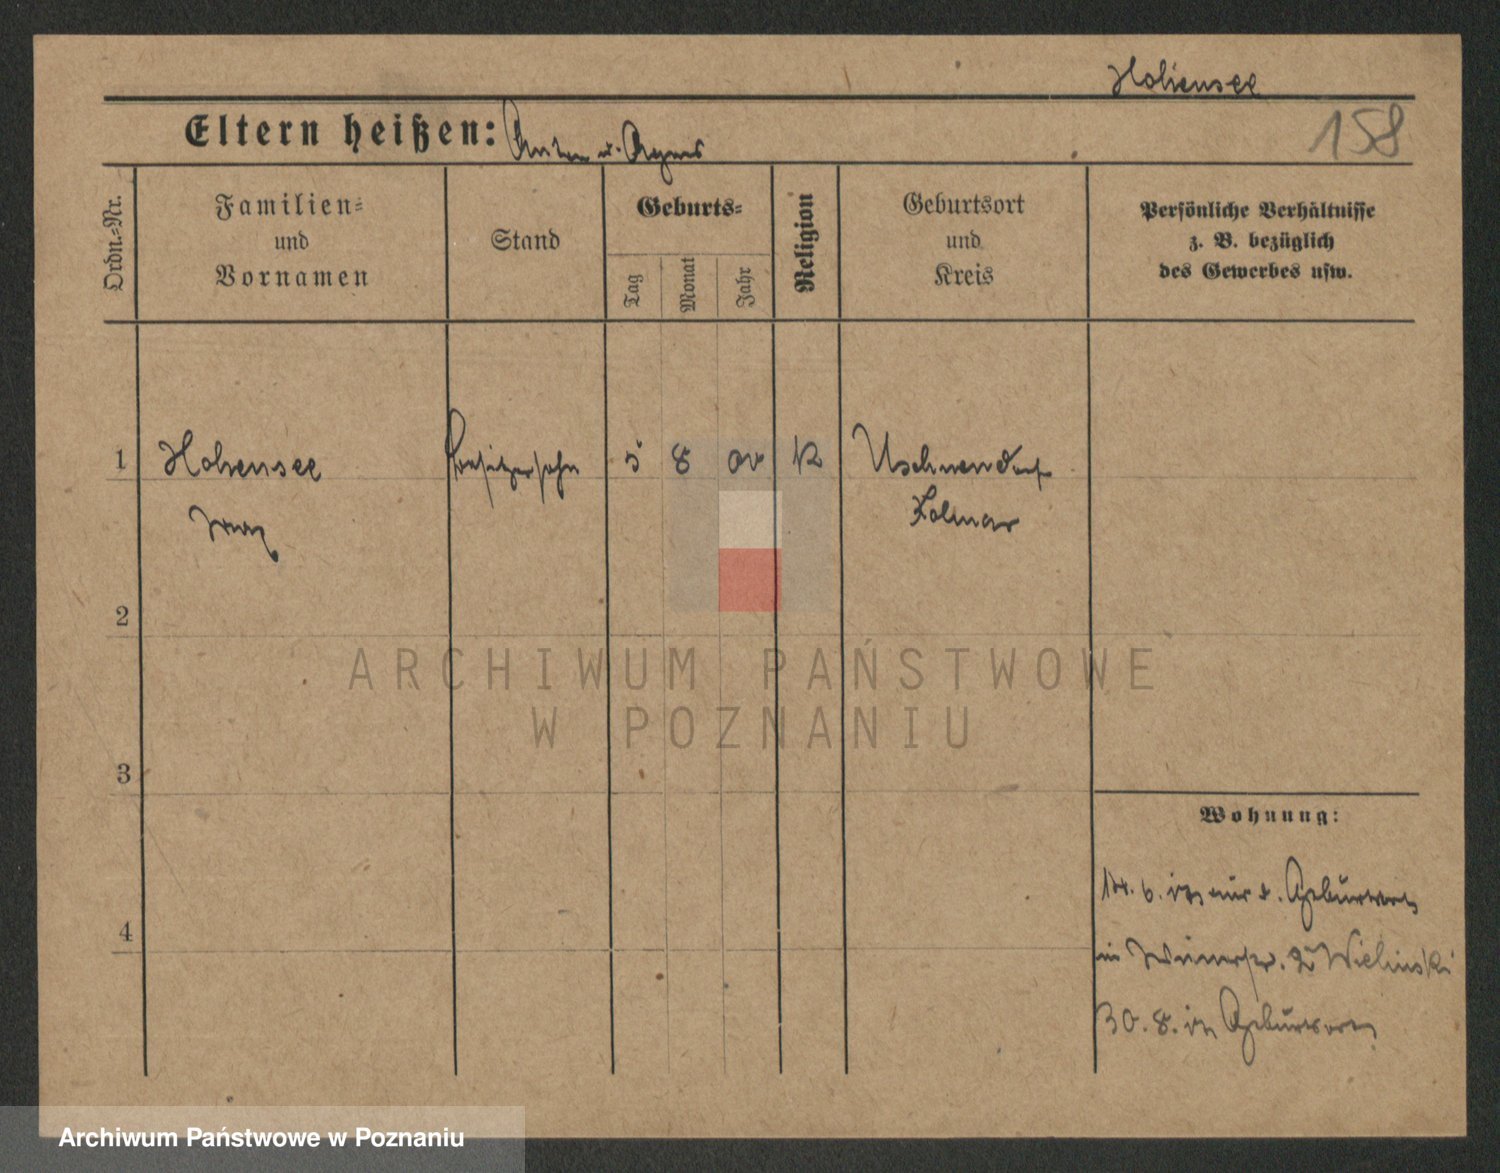 Hohensee
158
Eltern heißen: Anton u. Agnes
Ordn.-Nr.
Familien-
und
Vornamen
Stand
Geburts-
Tag
Monat
Jahr
Religion
Geburtsort
und
Kreis
Persönliche Verhältnisse
z. B. bezüglich
des Gewerbes usw.
1
Hohensee
Besitzersohn
5
8
00
K
Uschneudorf
Kolmar
Franz
2
ARCHIWUM PAŃSTWOWE
W POZNANIU
3
Wohnung:
14. 6. 17 aus d. Geburtsort
in 2 Wielinski
4
30. 8. 17 Geburtsort
Archiwum Państwowe w Poznaniu